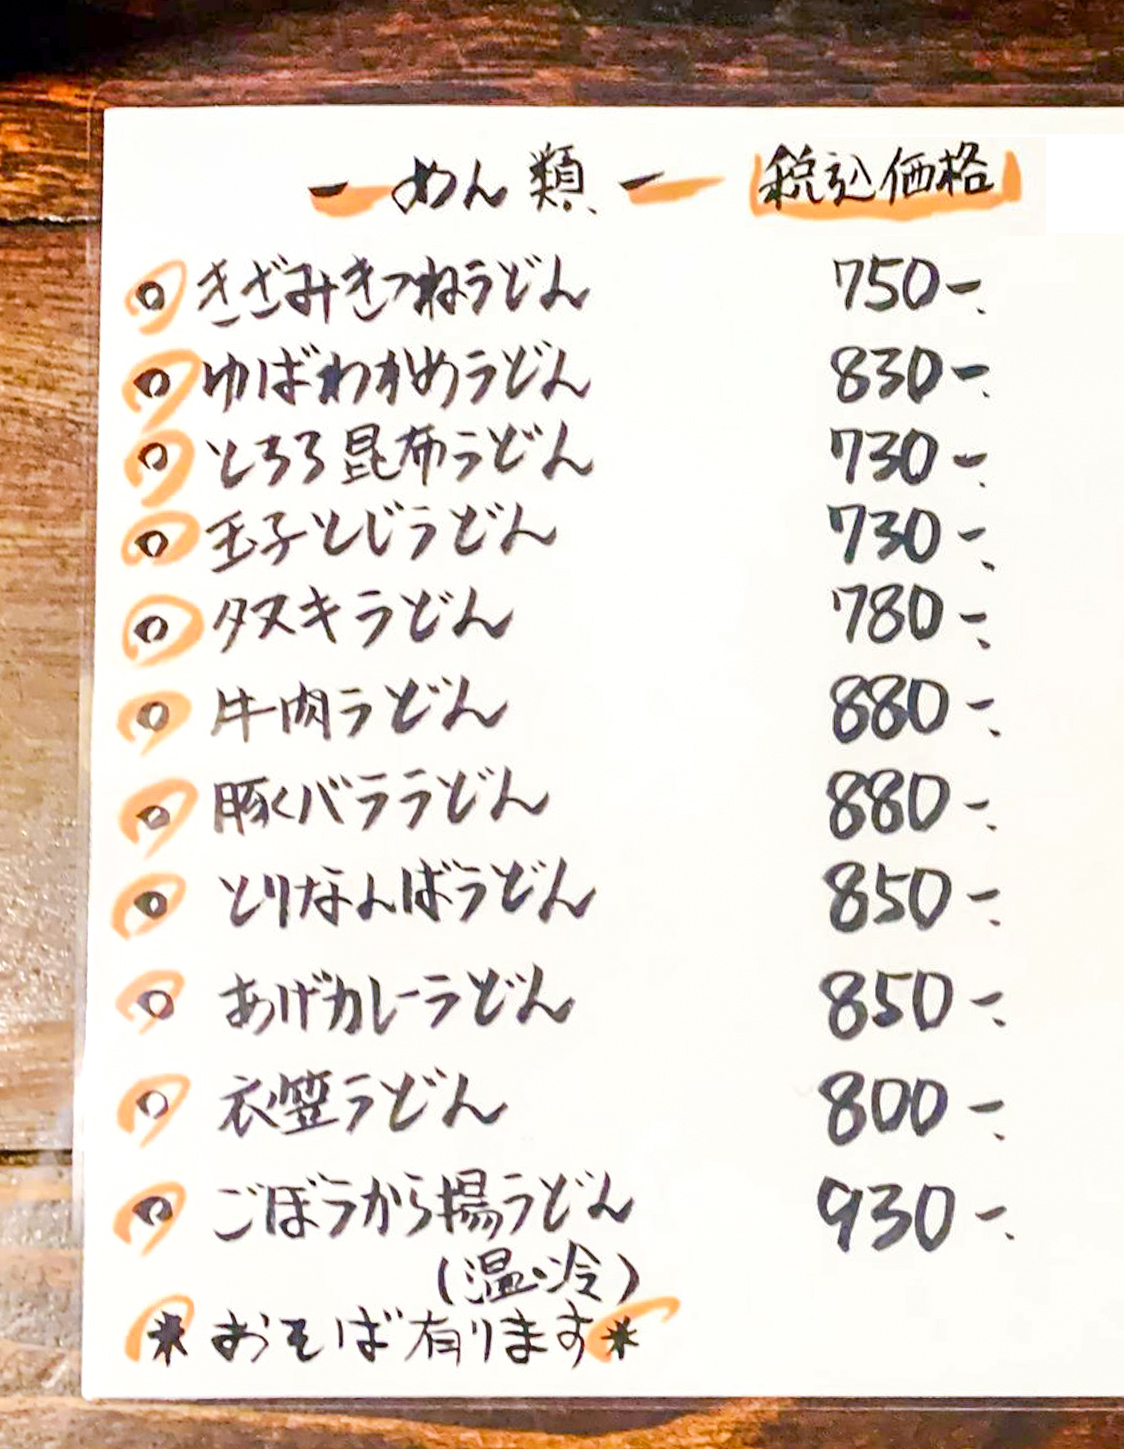 ーめん類ー 税込価格
○きざみきつねうどん 750-
○ゆばわかめうどん 830-
○とろろ昆布うどん 730-
○玉子とじうどん 730-
○タヌキうどん 780-
○牛肉うどん 880-
○豚バラうどん 880-
○とりなんばうどん 850-
○あげカレーうどん 850-
○衣笠うどん 800-
○ごぼうから揚うどん 930-
(温・冷)
＊おそば有ります＊